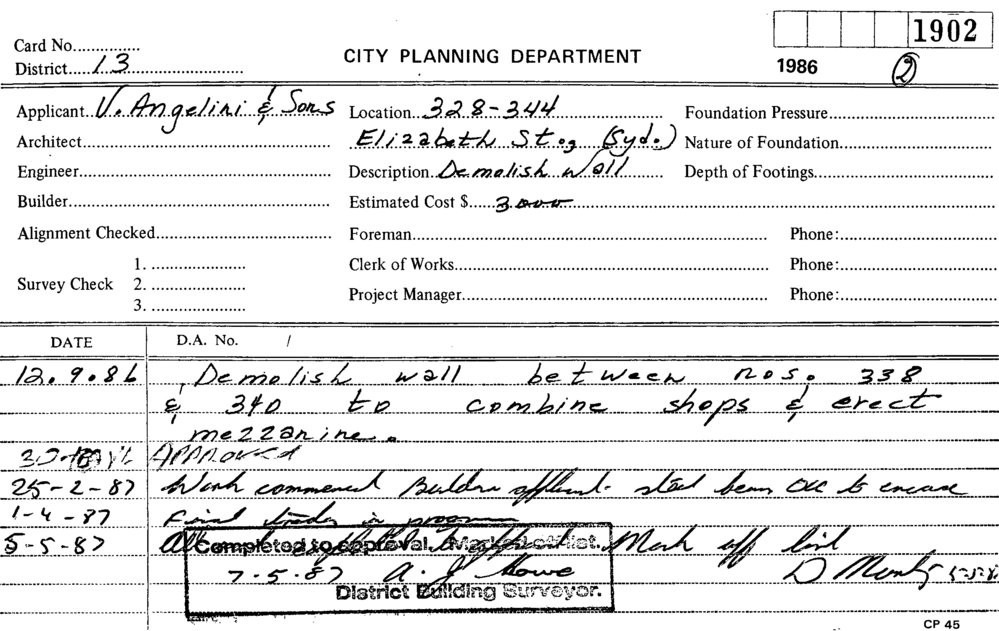 1902
Card No.
District 13
CITY PLANNING DEPARTMENT
1986 2
Applicant V. Angelini & Sons Location 328-344 Foundation Pressure
Architect Elizabeth St., (Syd.) Nature of Foundation
Engineer Description Demolish wall Depth of Footings
Builder Estimated Cost $ 3000
Alignment Checked Foreman Phone:
1. Clerk of Works Phone:
Survey Check 2.
3. Project Manager Phone:
DATE D.A. No. /
12.9.86 Demolish wall between nos. 338
& 340 to combine shops & erect
mezzanine.
APPROVED
25-2-87 Work commenced Builder applicant. steel beam OK to encase
1-4-87 Final trades in progress
5-5-87 All Mark off list
Completed to approval. Marked off list.
7.5.87 A. J. Howe D
District Building Surveyor.
CP 45